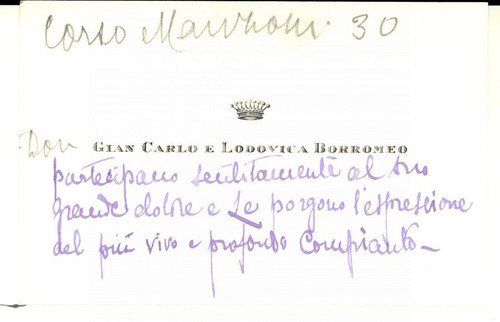 Corso Manzoni 30
Don GIAN CARLO E LODOVICA BORROMEO
partecipano sentitamente al suo
grande dolore e Le porgono l'espressione
del più vivo e profondo compianto –